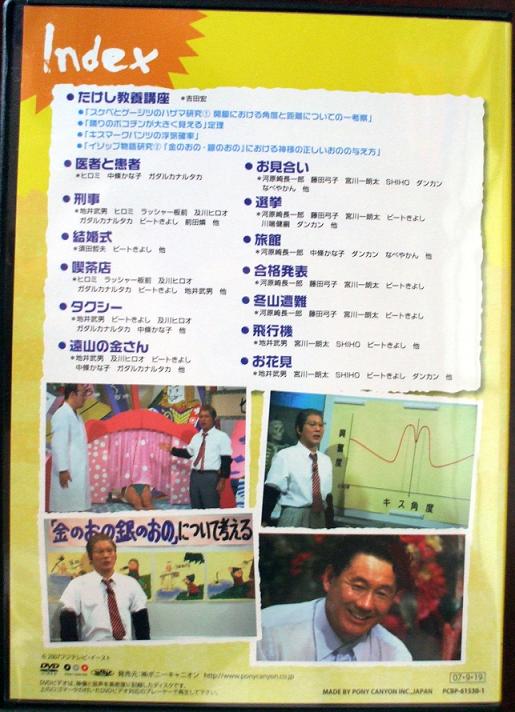 Index
●たけし教養講座 *吉田宏
●「スケベとゲージツのハザマ研究① 開脚における角度と距離についての一考察」
●「隣りのポコチンが大きく見える」定理
●「キスマークパンツの浮気確率」
●「イソップ物語研究② 「金のおの・銀のおの」における神様の正しいおのの与え方」
●医者と患者
*ヒロミ 中條かな子 ガダルカナルタカ
●刑事
*地井武男 ヒロミ ラッシャー板前 及川ヒロオ
ガダルカナルタカ ビートきよし 前田燐 他
●結婚式
*須田哲夫 ビートきよし 他
●喫茶店
*ヒロミ ラッシャー板前 及川ヒロオ
ガダルカナルタカ ビートきよし 地井武男 他
●タクシー
*地井武男 ビートきよし 及川ヒロオ
ガダルカナルタカ 中條かな子 他
●遠山の金さん
*地井武男 及川ヒロオ ビートきよし
中條かな子 ガダルカナルタカ 他
●お見合い
*河原崎長一郎 藤田弓子 宮川一朗太 SHIHO ダンカン
なべやかん 他
●選挙
*河原崎長一郎 藤田弓子 宮川一朗太 ビートきよし
川端健嗣 ダンカン 他
●旅館
*河原崎長一郎 中條かな子 ダンカン なべやかん 他
●合格発表
*河原崎長一郎 藤田弓子 宮川一朗太 ビートきよし
●冬山遭難
*河原崎長一郎 藤田弓子 宮川一朗太 ビートきよし
●飛行機
*地井武男 宮川一朗太 SHIHO ビートきよし 他
●お花見
*地井武男 宮川一朗太 SHIHO ビートきよし ダンカン 他
興奮度
キス角度
「金のおの銀のおの」について考える
© 2007フジテレビ・イースト
DVD VIDEO
発売元:㈱ポニーキャニオン http://www.ponycanyon.co.jp
DVDビデオは、映像と音声を高密度に記録したディスクです。
上のロゴマークの付いたDVDビデオ対応のプレーヤーで再生して下さい。
07・9・19
MADE BY PONY CANYON INC.,JAPAN PCBP-61530-1